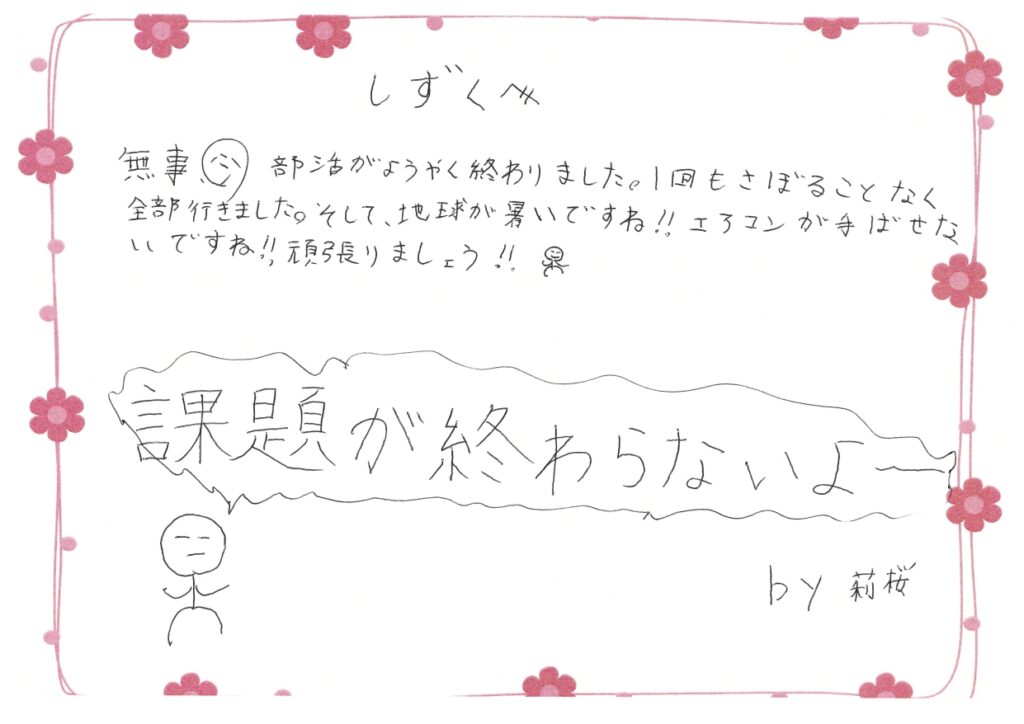 しずくへ
無事、部活がようやく終わりました。1回もさぼることなく
全部行きました。そして、地球が暑いですね!!エアコンが手ばせな
いですね!!頑張りましょう!!
課題が終わらないよー
by 莉桜